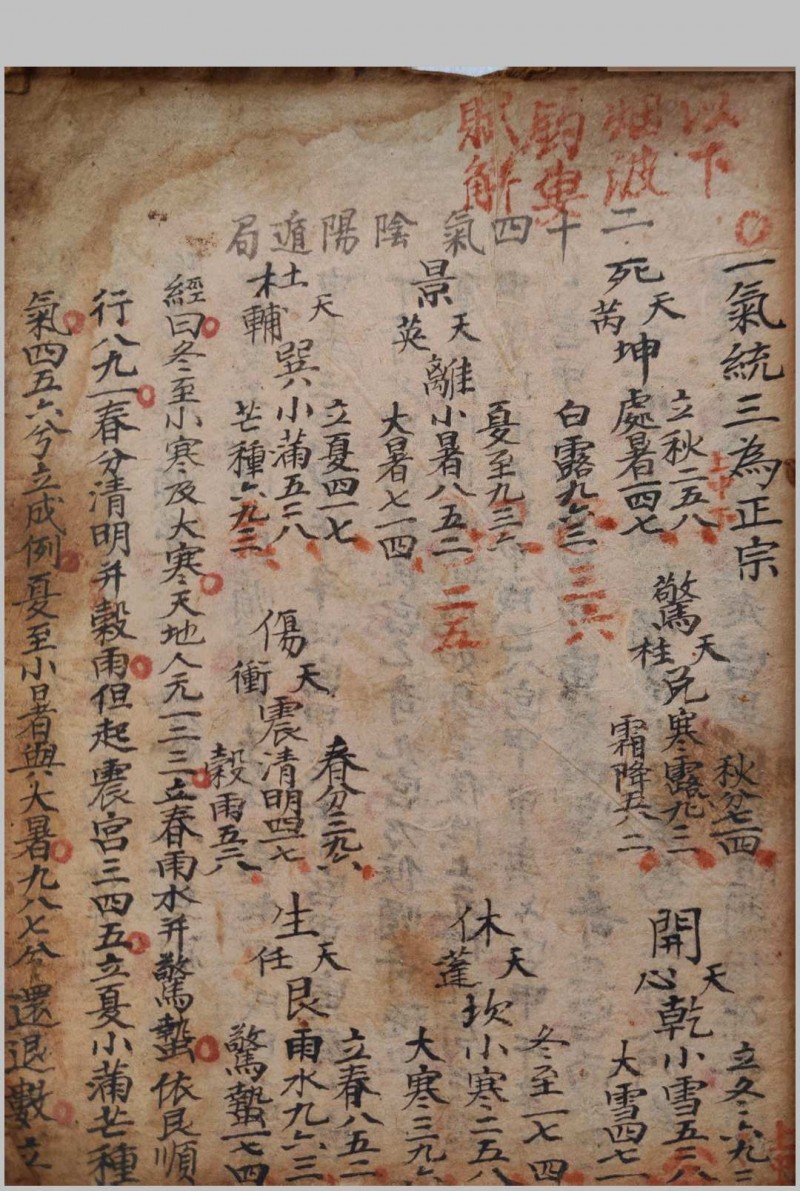 以下
烟波
釣叟
賦解
二十四氣陰陽遁局
一氣統三為正宗
上中下
死
天芮
坤
立秋二五八
處暑一四七
白露九六三
三六
驚
天柱
兌
秋分七一四
寒露九三
霜降五八二
開
天心
乾
立冬六九三
小雪五二八
大雪四七一
景
天英
離
夏至九三六
小暑八五二
大暑七一四
二五
休
天蓬
坎
冬至一七四
小寒二五八
大寒三九六
杜
天輔
巽
立夏四一七
小蒲五二八
芒種六九三
傷
天衝
震
春分三九六
清明四一七
穀雨五二八
生
天任
艮
立春八五二
雨水九六三
驚蟄一七四
經曰冬至小寒及大寒天地人元一二三立春雨水并驚蟄依艮順
行八九一春分清明并穀雨但起震宮三四五立夏小蒲芒種
氣四五六兮立成例夏至小暑與大暑九八七兮還退數立